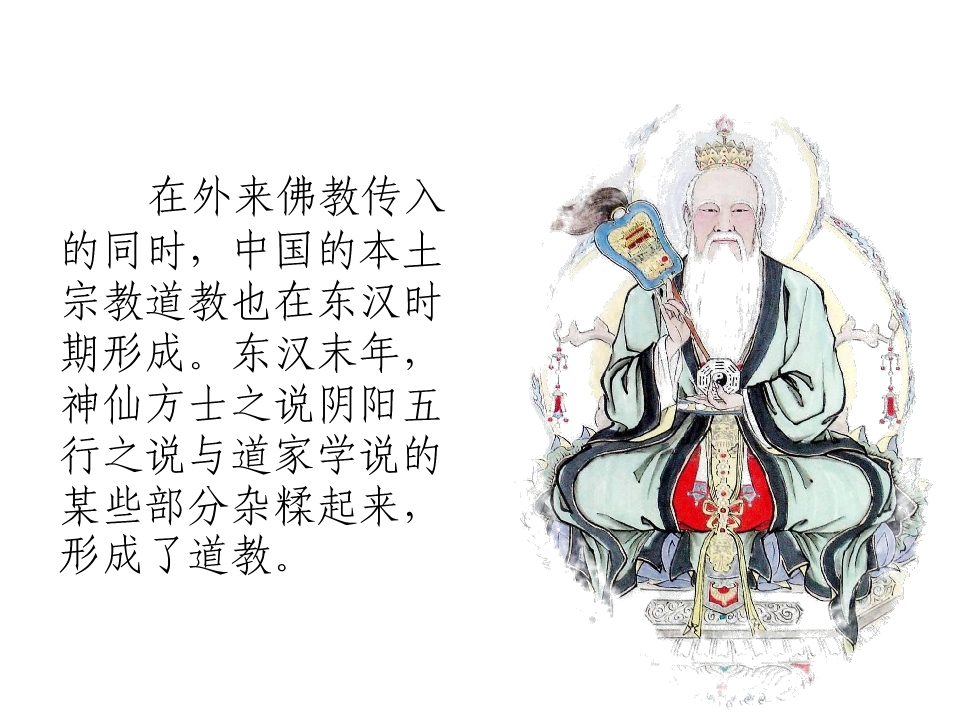 在外来佛教传入
的同时，中国的本土
宗教道教也在东汉时
期形成。东汉末年，
神仙方士之说阴阳五
行之说与道家学说的
某些部分杂糅起来，
形成了道教。